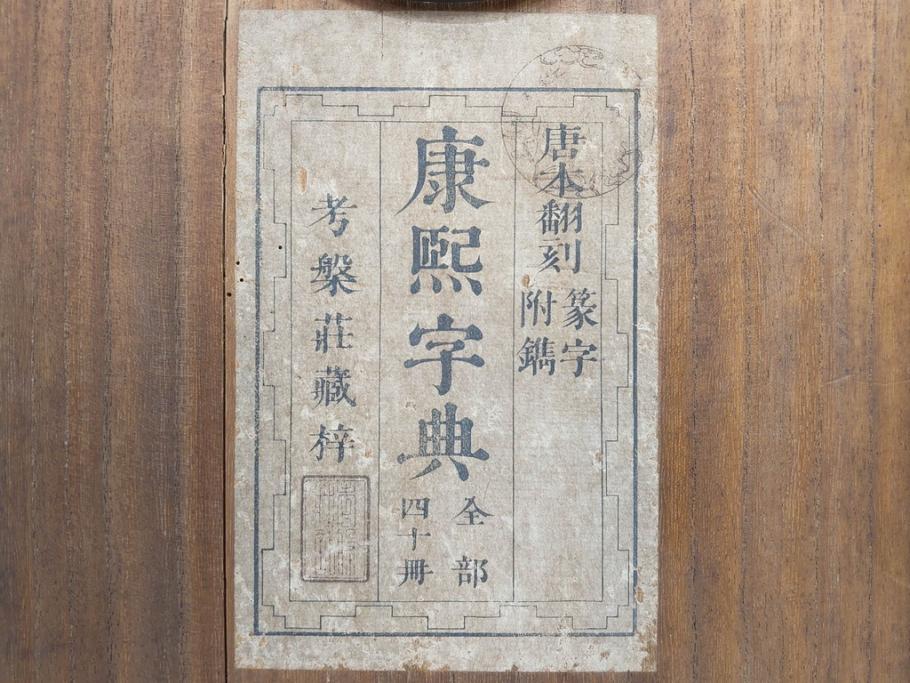 唐本翻刻
篆字
附鐫
康熙字典
全部
四十冊
考槃莊藏梓